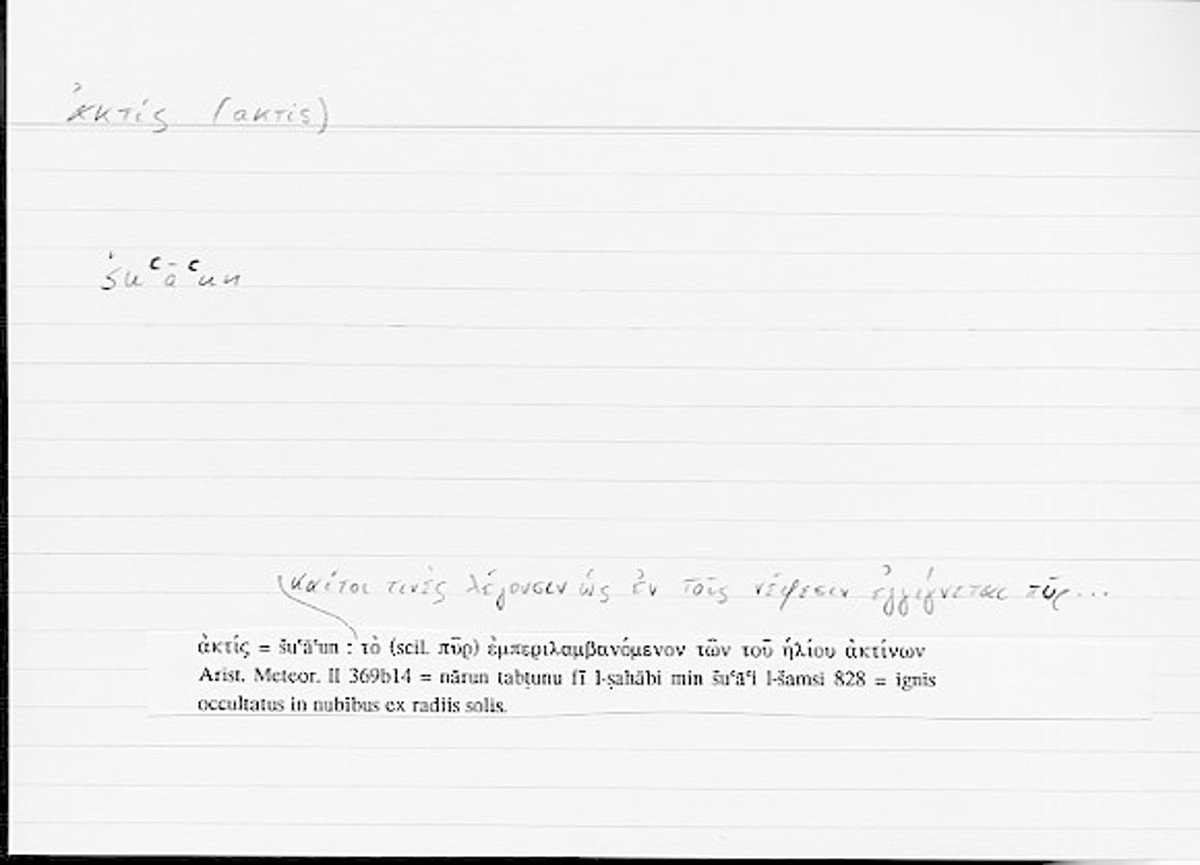 ἀκτίς (ακτις)
šuʿāʿun
καίτοι τινὲς λέγουσιν ὡς ἐν τοῖς νέφεσιν ἐγγίγνεται πῦρ...
ἀκτίς = šuʿāʿun : τὸ (scil. πῦρ) ἐμπεριλαμβανόμενον τῶν τοῦ ἡλίου ἀκτίνων
Arist. Meteor. II 369b14 = nārun tabṭunu fī l-ṣahābi min šuʿāʿi l-šamsi 828 = ignis
occultatus in nubibus ex radiis solis.